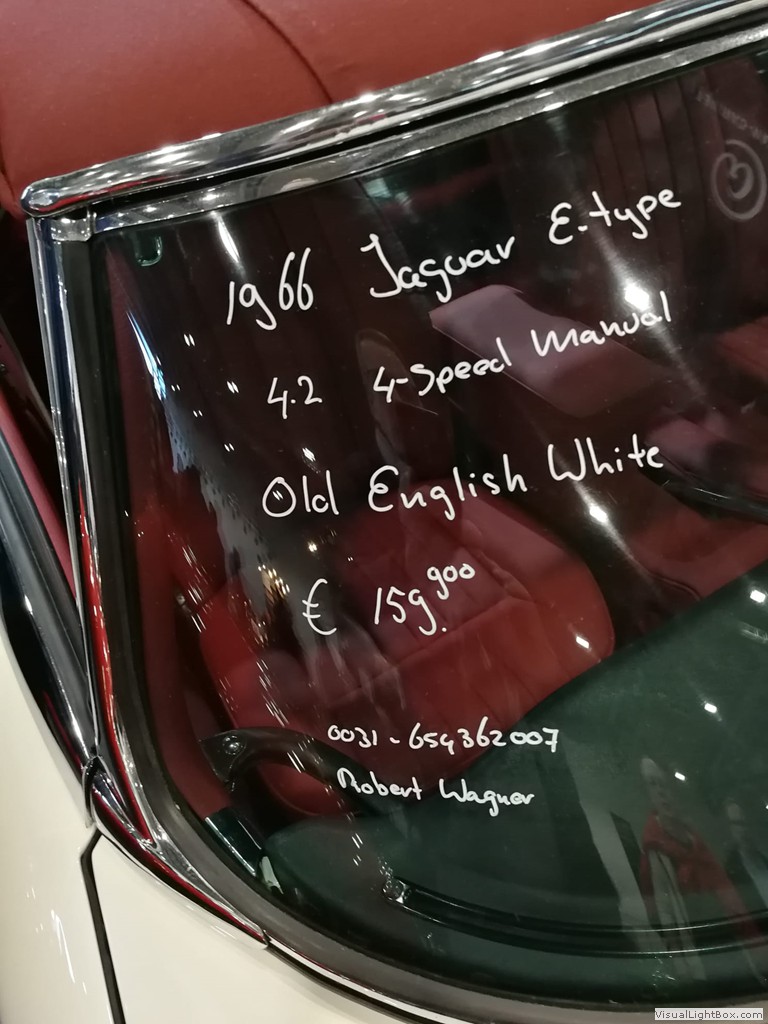 1966 Jaguar E-type
" " 4.2 4-Speed Manual
Old English White
€ 159.900
0031-654362007
Robert Wagner
VisualLightBox.com